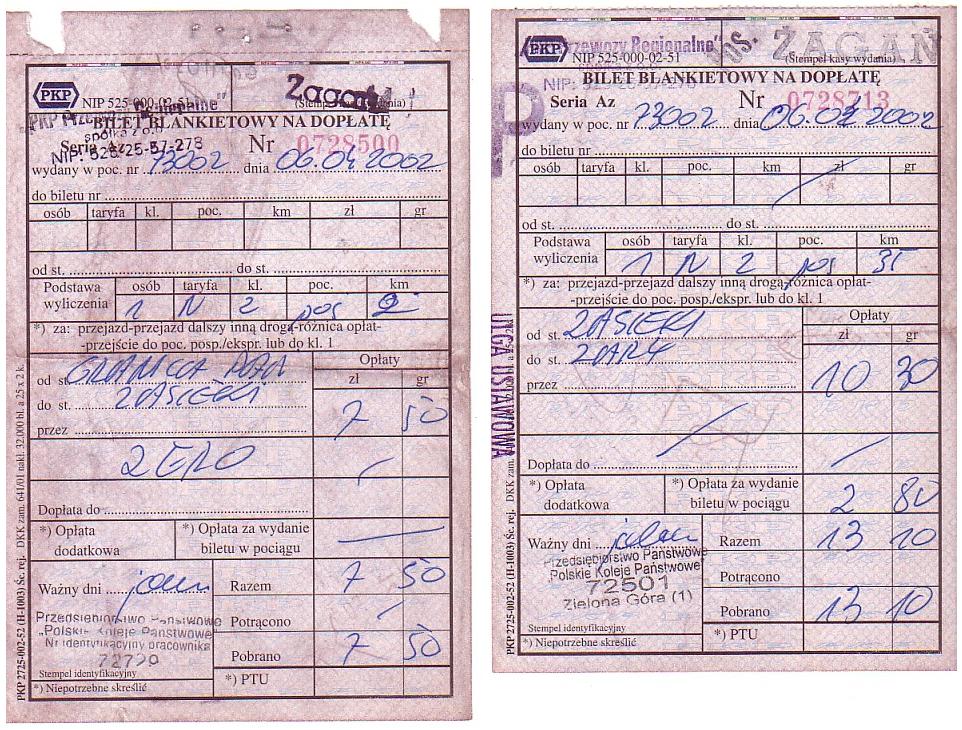 Żagań
PKP NIP 525-000-02-51
BILET BLANKIETOWY NA DOPŁATĘ
spółka z o.o.
Seria Az Nr 0728500
NIP: 526-25-57-278
wydany w poc. nr 73002 dnia 06.04 2002
do biletu nr
osób taryfa kl. poc. km zł gr
od st. do st.
Podstawa wyliczenia osób taryfa kl. poc. km
1 N 2 pos 2
*) za: przejazd-przejazd dalszy inną drogą-różnica opłat-
-przejście do poc. posp./ekspr. lub do kl. 1
Opłaty
od st. GRANICA zł gr
do st. ZASIEKI 7 50
przez
ZERO
Dopłata do
*) Opłata dodatkowa *) Opłata za wydanie biletu w pociągu
Ważny dni jeden Razem 7 50
Przedsiębiorstwo Państwowe
"Polskie Koleje Państwowe"
Nr identyfikacyjny pracownika
72720
Potrącono
Pobrano 7 50
Stempel identyfikacyjny
*) Niepotrzebne skreślić *) PTU
PKP 2725-002-52 (H-1003) Śc. rej. DKK zam. 641/01 nakł. 32.000 bl. a 25 x 2 k.
Przewozy Regionalne"
POS. ŻAGAŃ
PKP NIP 525-000-02-51 (Stempel kasy wydania)
BILET BLANKIETOWY NA DOPŁATĘ
Seria Az Nr 0728713
wydany w poc. nr 73002 dnia 06.04 2002
do biletu nr
osób taryfa kl. poc. km zł gr
od st. do st.
Podstawa wyliczenia osób taryfa kl. poc. km
1 N 2 pos 35
*) za: przejazd-przejazd dalszy inną drogą-różnica opłat-
-przejście do poc. posp./ekspr. lub do kl. 1
Opłaty
od st. ZASIEKI zł gr
do st. ŻARY 10 30
przez
ULGA USTAWOWA
Dopłata do
*) Opłata dodatkowa *) Opłata za wydanie biletu w pociągu 2 80
Ważny dni jeden Razem 13 10
Przedsiębiorstwo Państwowe
"Polskie Koleje Państwowe"
72501
Zielona Góra (1)
Potrącono
Pobrano 13 10
Stempel identyfikacyjny
*) Niepotrzebne skreślić *) PTU
PKP 2725-002-52 (H-1003) Śc. rej. DKK zam.